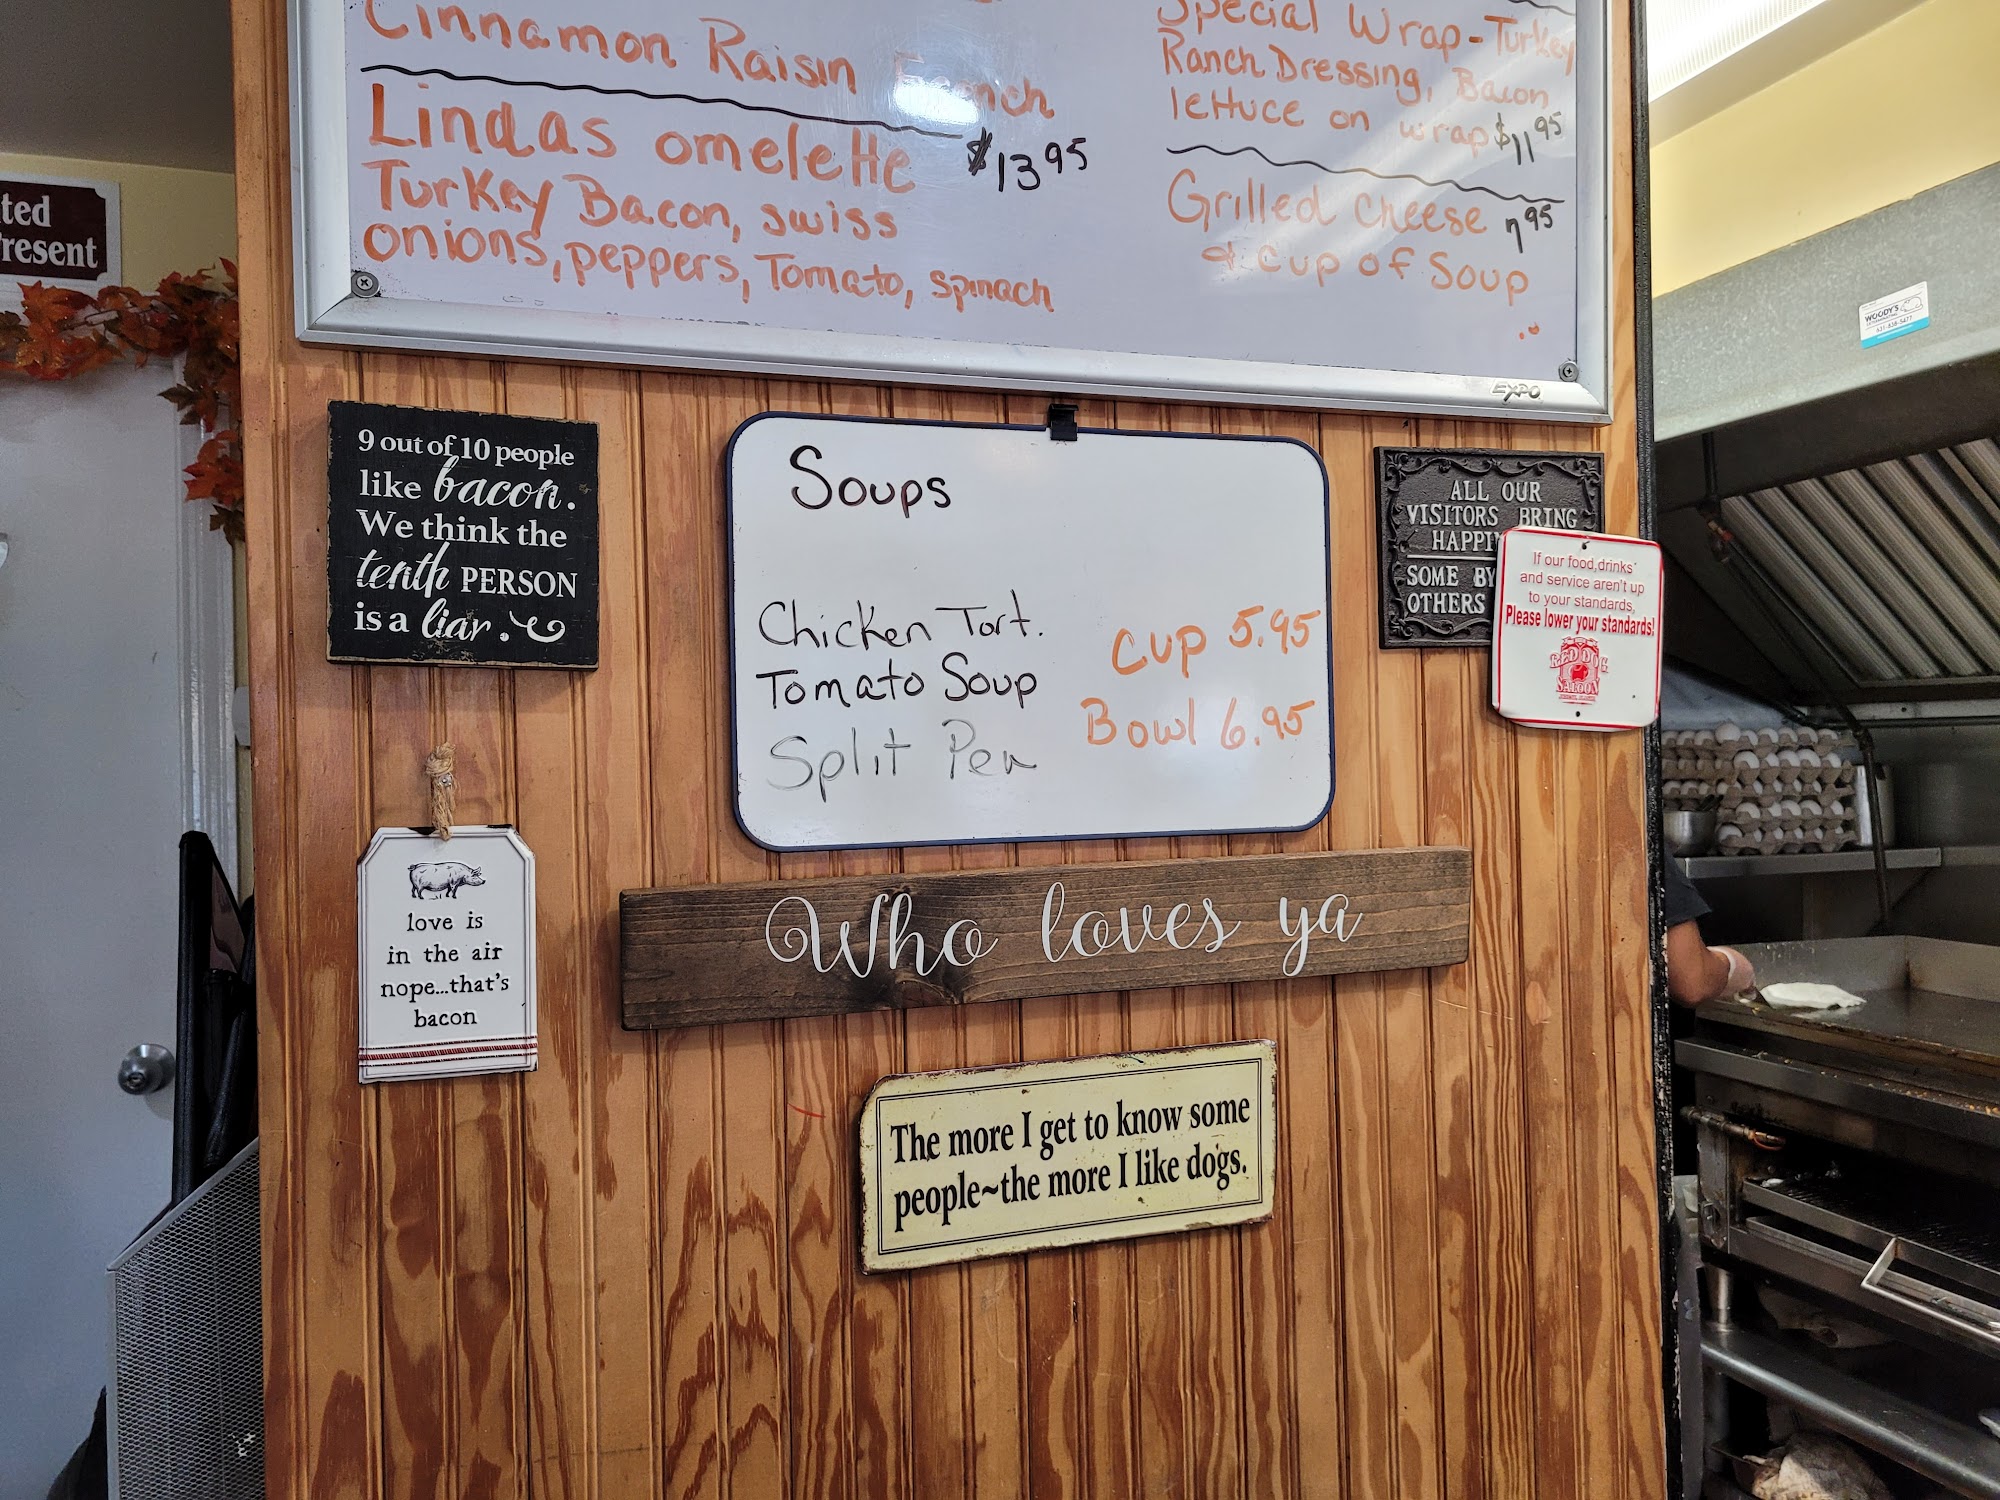 Cinnamon Raisin French
Lindas omelette $13.95
Turkey Bacon, swiss
onions, peppers, Tomato, spinach
Special Wrap-Turkey
Ranch Dressing, Bacon
lettuce on wrap $11.95
Grilled cheese 7.95
& cup of Soup
EXPO
ted
resent
9 out of 10 people
like bacon.
We think the
tenth PERSON
is a liar.
Soups
Chicken Tort.
Tomato Soup
Split Pea
Cup 5.95
Bowl 6.95
ALL OUR
VISITORS BRING
HAPPI
SOME BY
OTHERS
If our food,drinks
and service aren't up
to your standards,
Please lower your standards!
RED DOG
SALOON
WOODY'S
631-838-5477
love is
in the air
nope...that's
bacon
Who loves ya
The more I get to know some
people~the more I like dogs.